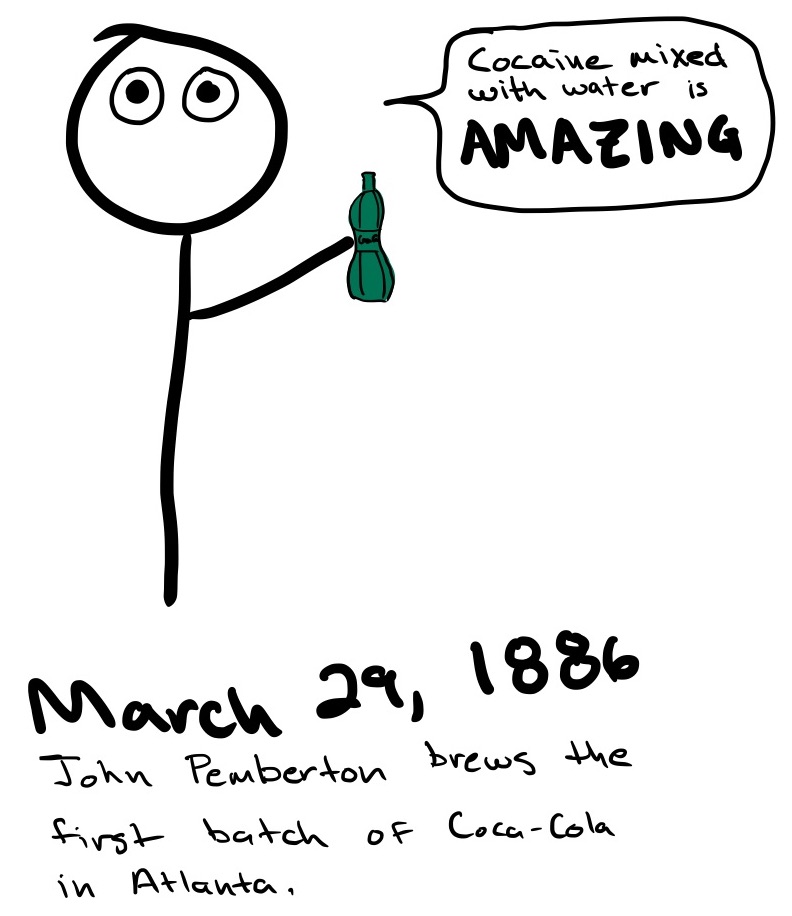 Cocaine mixed
with water is
AMAZING
March 29, 1886
John Pemberton brews the
first batch of Coca-Cola
in Atlanta.